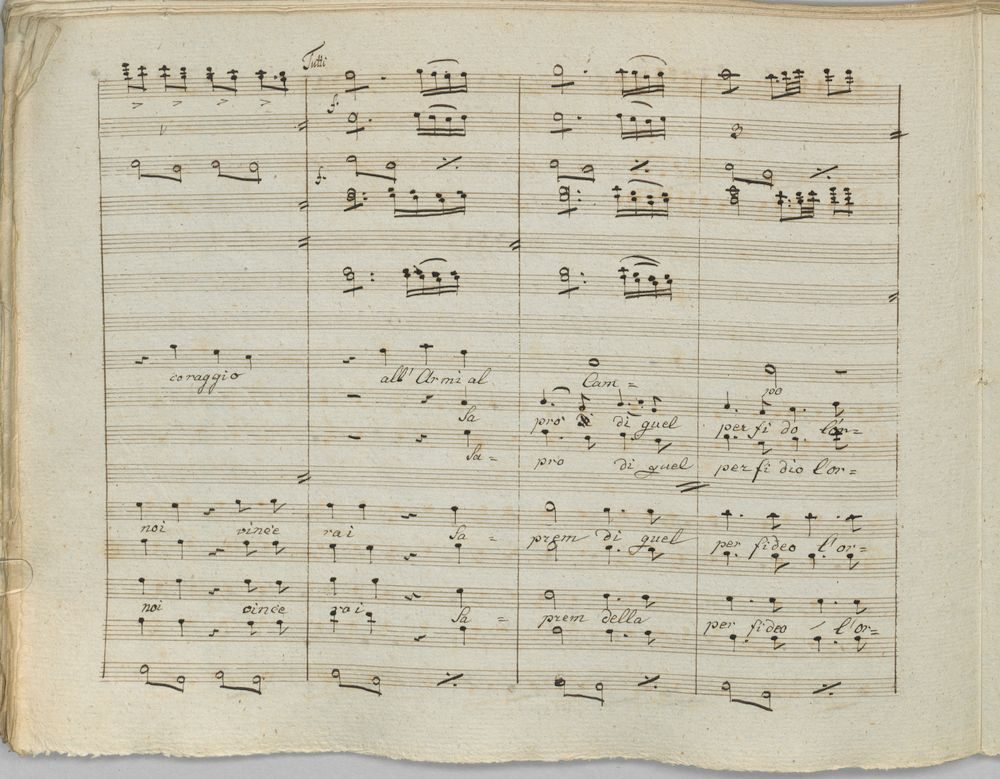 Tutti
f.
f.
coraggio all' Armi al Cam = po
Sa pro di quel perfi do l'or=
Sa= pro di quel perfi dio l'or=
noi vince rai Sa = prem di quel per fideo l'or=
noi vince rai Sa = prem della per fideo l'or=